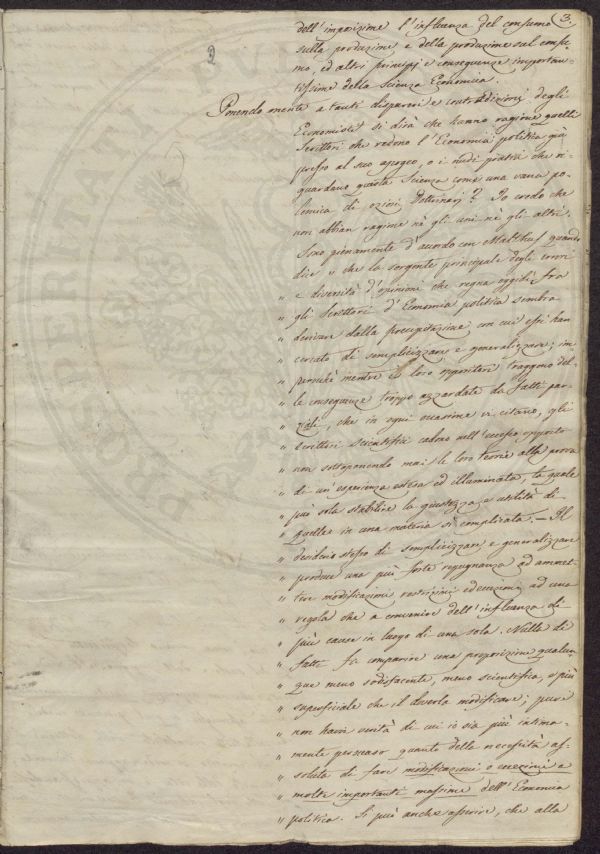 3.
dell'imposizione l'influenza del consumo
sulla produzione e della produzione sul consu-
mo, ed altri principj e conseguenze importan-
tissime della Scienza Economica.
Ponendo mente a tanti dispareri e contradizioni degli
Economisti si dirà che hanno ragione quelli
Scrittori che vedono l'Economia politica già
presso al suo apogeo, o i nudi pratici che ri-
guardano questa Scienza come una vana po-
lemica di oziosi Dottrinarj? Io credo che
non abbian ragione nè gli uni nè gli altri.
Sono pienamente d'accordo con Malthus quando
dice " che la sorgente principale degli errori
" e diversità d'opinioni che regna oggidì fra
" gli Scrittori d'Economia politica sembra
" derivare dalla precipitazione con cui essi han
" cercato di semplicizzare e generalizzare; im
" perochè mentre i loro oppositori traggono del-
" le conseguenze troppo azzardate da fatti par-
" ziali, che in ogni occasione vi citano, gli
" scrittori scientifici cadono nell'eccesso opposto
" non sottoponendo mai le loro teorie alla prova
" di un'esperienza estesa ed illuminata, la quale
" può sola stabilire la giustezza e utilità di
" quelle in una materia sì complicata. — Il
" desiderio stesso di semplicizzare e generalizzare
" produce una più forte repugnanza ad ammet-
" tere modificazioni restrizioni ed eccezioni ad una
" regola che a convenire dell'influenza di
" più cause in luogo di una sola. Nulla di
" fatti fa comparire una proposizione qualun
" que meno sodisfacente, meno scientifica, e più
" superficiale che il doverla modificare; pure
" non havvi verità di cui io sia più intima-
" mente persuaso quanto della necessità as-
" soluta di fare modificazioni o eccezioni a
" molte importanti massime dell'Economia
" politica. Si può anche asserire, che alla